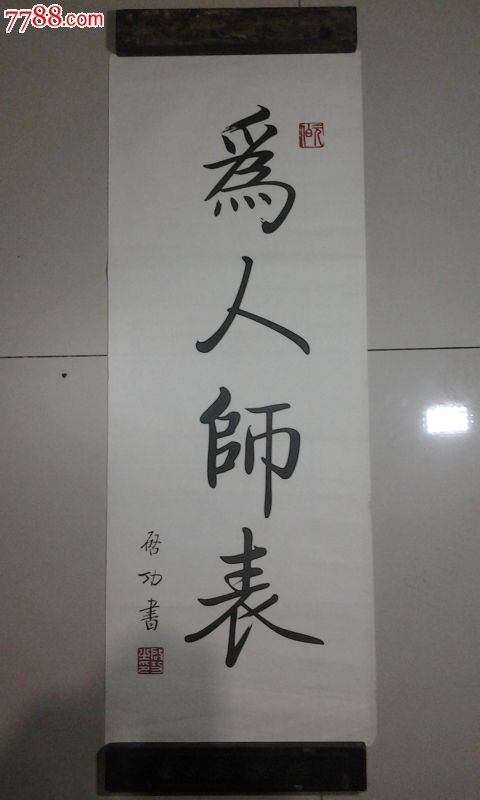 7788.com
為人師表
启功書